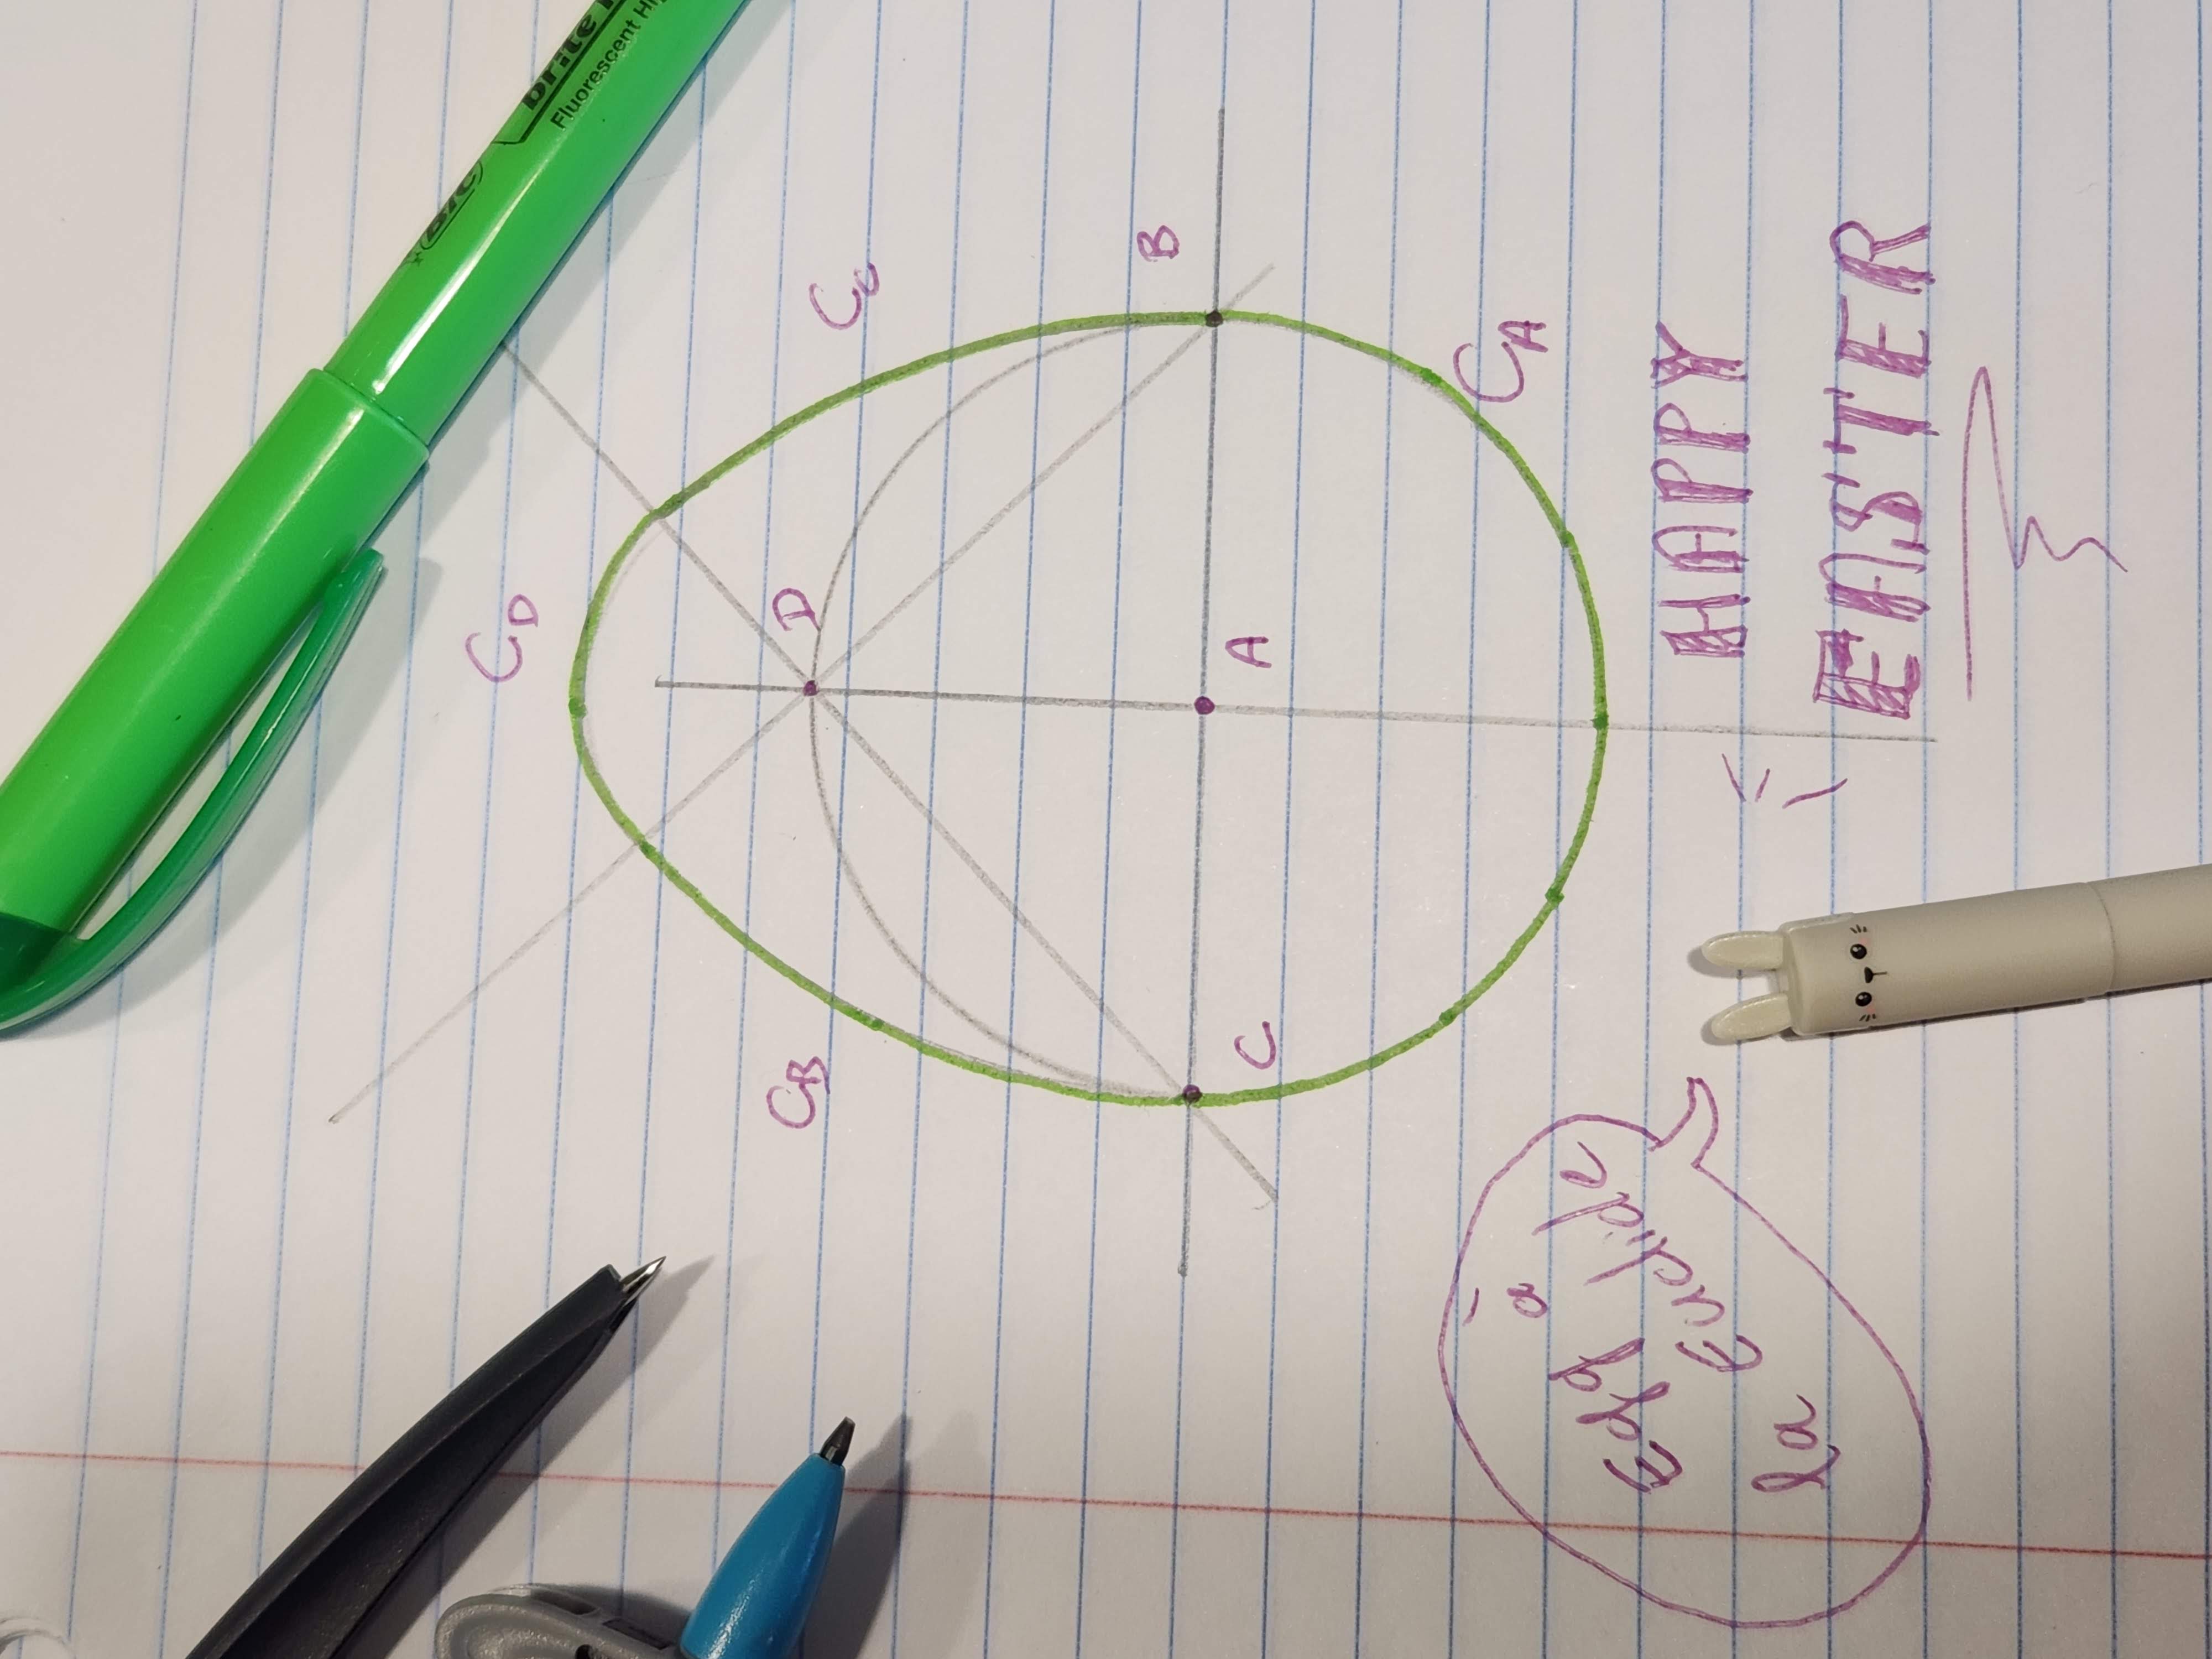 BIC
Brite
Fluorescent Hi
C_D
C_B
D
C_C
B
C
A
C_A
Egg à
la Euclide
HAPPY
EASTER